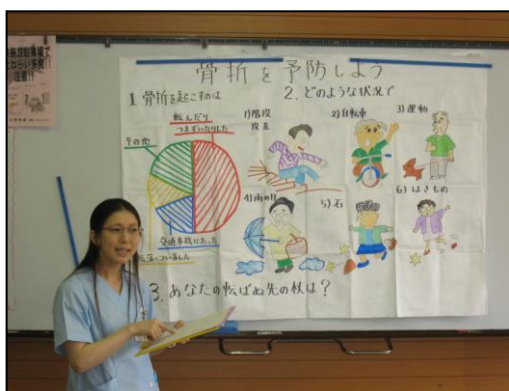 駐車場で
ねらい多発!!
注意!!
骨折を予防しよう
1 骨折を起こすのは
2. どのような状況で
転んだり
つまずいたりした
その他
交通事故にあった
1)階段
段差
2)自転車
3)運動
4)雨の日
5)石
6)はきもの
3. あなたの転ばぬ先の杖は?